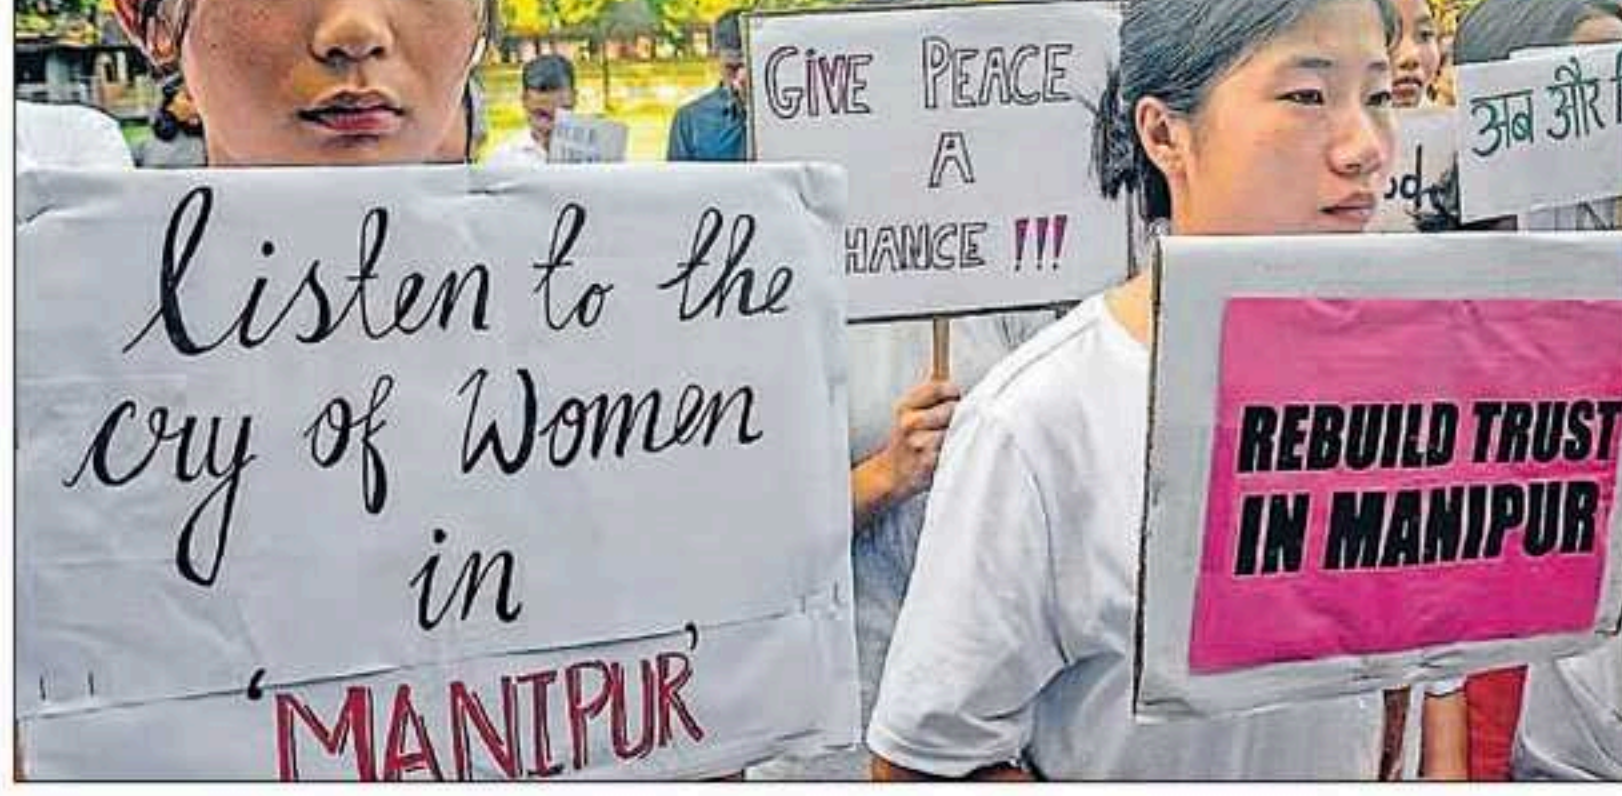 listen to the
cry of Women
in
'MANIPUR'
GIVE PEACE
A
HANCE !!!
REBUILD TRUST
IN MANIPUR
अब और